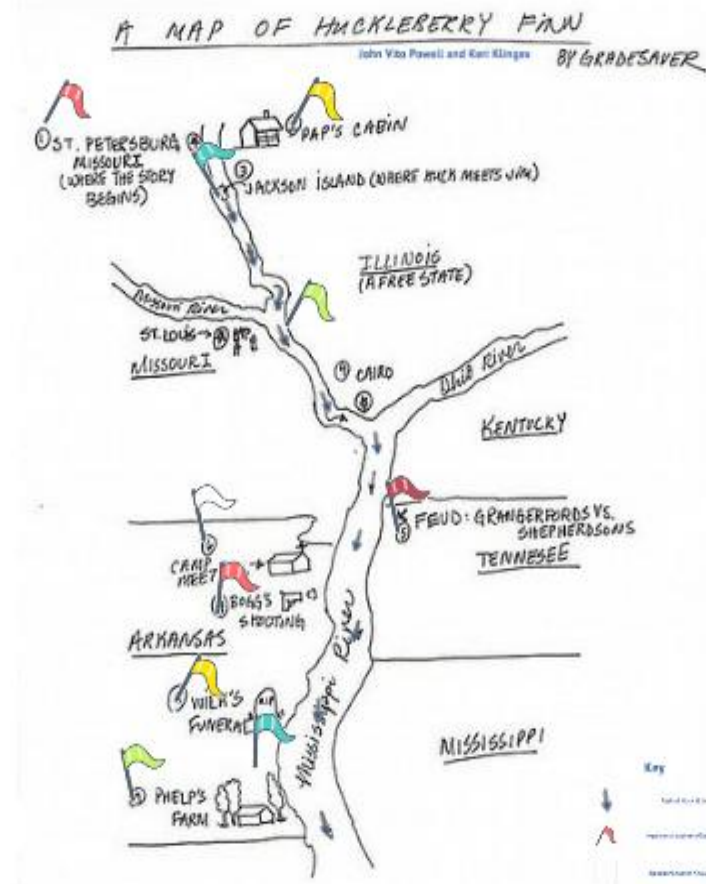 A MAP OF HUCKLEBERRY FINN
John Vito Powell and Keri Klinges
BY GRADESAVER
① ST. PETERSBURG
MISSOURI
(WHERE THE STORY
BEGINS)
PAP'S CABIN
③
JACKSON ISLAND (WHERE HUCK MEETS JIM)
ILLINOIS
(A FREE STATE)
Missouri River
ST. LOUIS →
MISSOURI
CAIRO
Ohio River
KENTUCKY
⑤ FEUD: GRANGERFORDS VS.
SHEPHERDSONS
TENNESEE
CAMP
MEET
BOGGS
SHOOTING
ARKANSAS
Mississippi River
WILK'S
FUNERAL
RIP
MISSISSIPPI
PHELP'S
FARM
Key